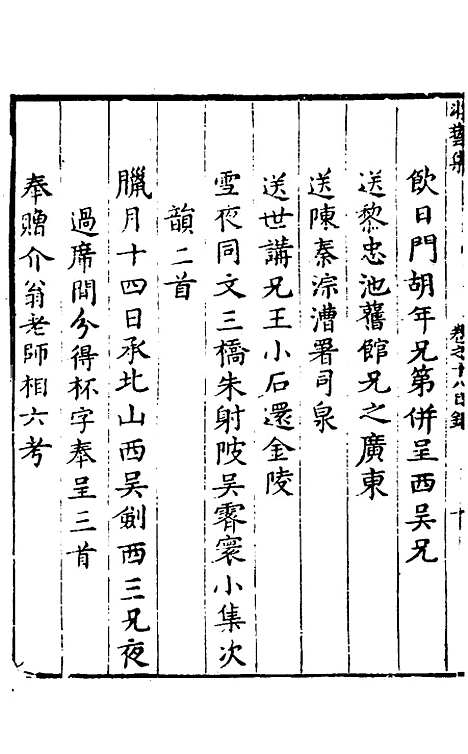 藝集 卷之十八目錄 十
飲日門胡年兄第併呈西吳兄
送黎忠池舊館兄之廣東
送陳秦淙漕署司泉
送世講兄王小石還金陵
雪夜同文三橋朱射陂吳霽寰小集次
韻二首
臘月十四日承北山西吳劍西三兄夜
過席間分得杯字奉呈三首
奉贈介翁老師相六考